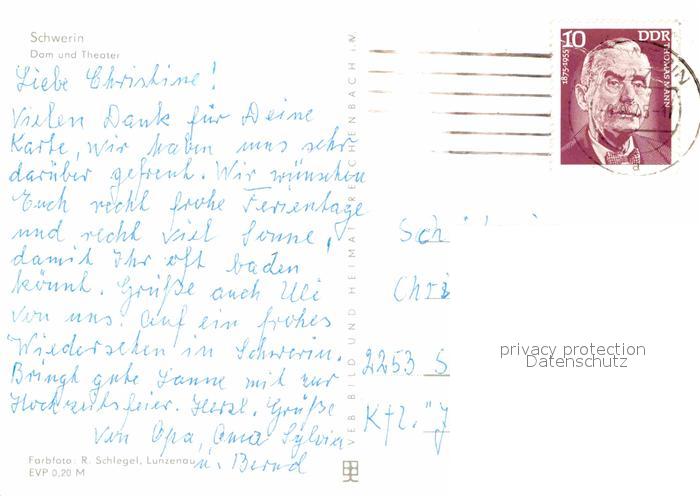 Schwerin
Dom und Theater
Liebe Christine!
Vielen Dank für Deine
Karte, wir haben uns sehr
darüber gefreut. Wir wünschen
Euch recht frohe Ferientage
und recht viel Sonne,
damit Ihr oft baden
könnt. Grüße auch Uli
von uns. Auf ein frohes
Wiedersehen in Schwerin.
Bringt gute Laune mit zur
Hochzeitsfeier. Herzl. Grüße
von Opa, Oma Sylvia
u. Bernd
Farbfoto: R. Schlegel, Lunzenau
EVP 0,20 M
VEB BILD UND HEIMAT REICHENBACH i.V.
10 DDR
1875-1955
THOMAS MANN
Sch
Chri
2253 S
Kfl. "J
privacy protection
Datenschutz